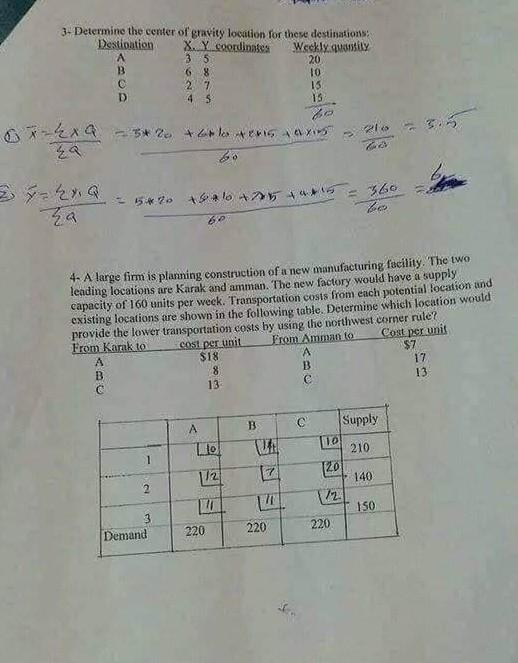 3- Determine the center of gravity location for these destinations:
Destination X, Y coordinates Weekly quantity
A 3 5 20
B 6 8 10
C 2 7 15
D 4 5 15
60
① x̄ = ΣxQ / ΣQ = 3*20 + 6*10 + 2*15 + 4*15 / 60 = 210 / 60 = 3.5
② ȳ = Σy,Q / ΣQ = 5*20 + 8*10 + 7*15 + 4*15 / 60 = 360 / 60 = 6
4- A large firm is planning construction of a new manufacturing facility. The two
leading locations are Karak and amman. The new factory would have a supply
capacity of 160 units per week. Transportation costs from each potential location and
existing locations are shown in the following table. Determine which location would
provide the lower transportation costs by using the northwest corner rule?
From Karak to cost per unit From Amman to Cost per unit
A $18 A $7
B 8 B 17
C 13 C 13
A B C Supply
1 10 14 10 210
2 12 7 20 140
3 11 11 12 150
Demand 220 220 220